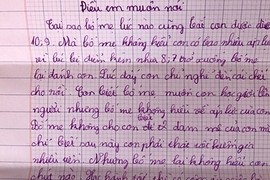 Điều em muốn nói
Tại sao bố mẹ lúc nào cũng bắt con được điểm
10, 9. Mà bố mẹ không hiểu con có bao nhiêu áp lực
rồi lúc điểm kém như 8, 7 thì bố mẹ
lại đánh con. Lúc đấy con chỉ nghĩ đến cái chết
cho rồi. Con biết bố mẹ muốn con học giỏi
người nhưng bố mẹ không hiểu về áp lực của con
Bố mẹ không cho con đi đam mê của con mà
chỉ biết sau này con phải chức
nhiều tiền. Nhưng bố mẹ lại không hiểu con
chút nào.